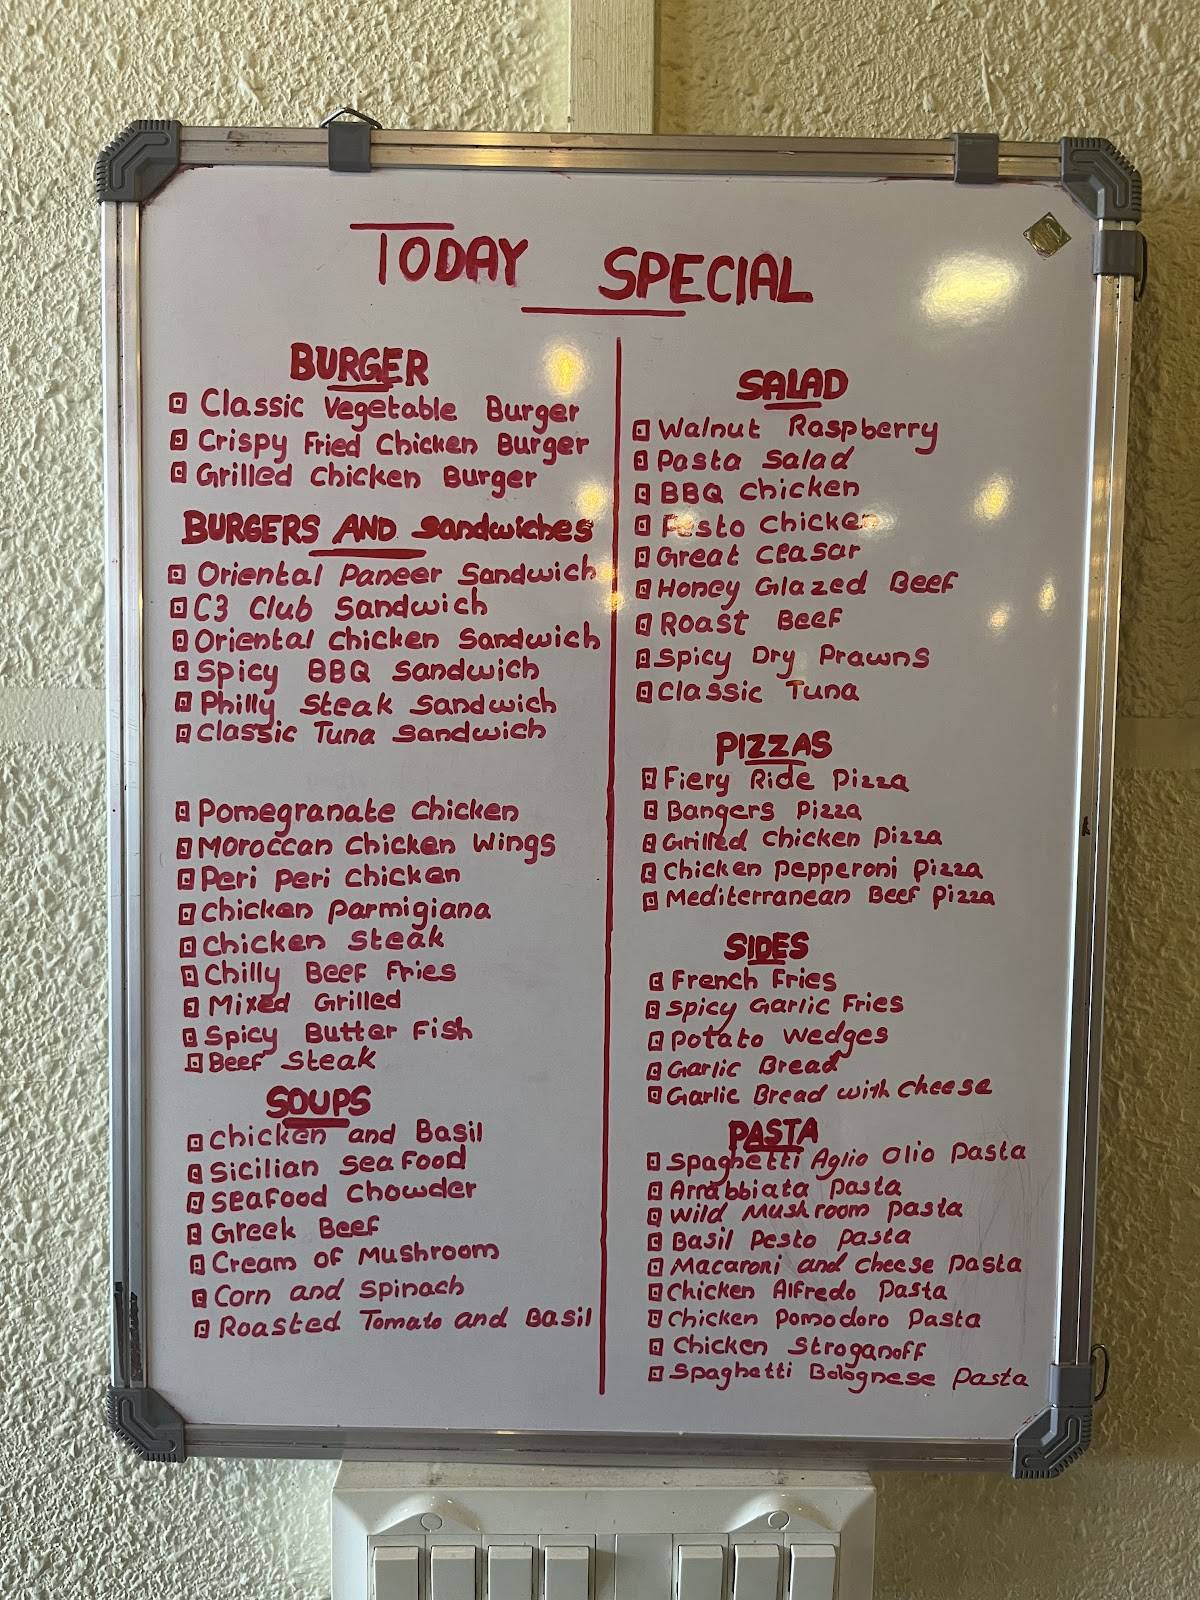 TODAY SPECIAL
BURGER
Classic Vegetable Burger
Crispy Fried Chicken Burger
Grilled Chicken Burger
BURGERS AND Sandwiches
Oriental Paneer Sandwich
C3 Club Sandwich
Oriental Chicken Sandwich
Spicy BBQ Sandwich
Philly Steak Sandwich
Classic Tuna Sandwich
Pomegranate Chicken
Moroccan Chicken Wings
Peri Peri Chicken
Chicken Parmigiana
Chicken Steak
Chilly Beef Fries
Mixed Grilled
Spicy Butter Fish
Beef Steak
SOUPS
Chicken and Basil
Sicilian Sea Food
Seafood Chowder
Greek Beef
Cream of Mushroom
Corn and Spinach
Roasted Tomato and Basil
SALAD
Walnut Raspberry
Pasta Salad
BBQ Chicken
Pesto Chicken
Great Ceasar
Honey Glazed Beef
Roast Beef
Spicy Dry Prawns
Classic Tuna
PIZZAS
Fiery Ride Pizza
Bangers Pizza
Grilled Chicken Pizza
Chicken Pepperoni Pizza
Mediterranean Beef Pizza
SIDES
French Fries
Spicy Garlic Fries
Potato Wedges
Garlic Bread
Garlic Bread with Cheese
PASTA
Spaghetti Aglio Olio Pasta
Arrabbiata Pasta
Wild Mushroom Pasta
Basil Pesto Pasta
Macaroni and Cheese Pasta
Chicken Alfredo Pasta
Chicken Pomodoro Pasta
Chicken Stroganoff
Spaghetti Bolognese Pasta